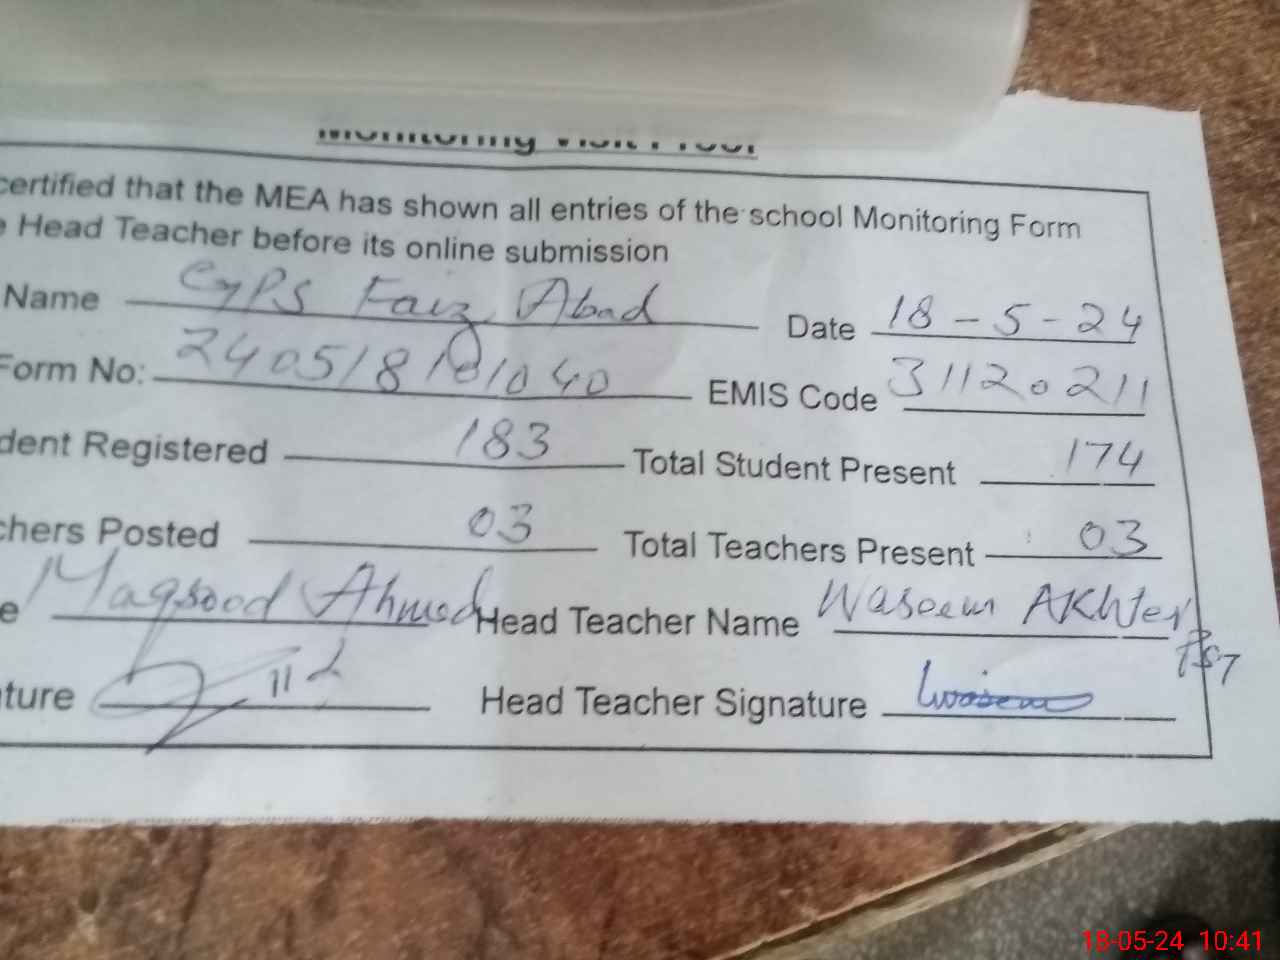 Monitoring Visit Proof
certified that the MEA has shown all entries of the school Monitoring Form
e Head Teacher before its online submission
Name GPS Faiz Abad Date 18-5-24
Form No: 240518101040 EMIS Code 31120211
dent Registered 183 Total Student Present 174
chers Posted 03 Total Teachers Present 03
e Maqsood Ahmed Head Teacher Name Waseem AKhter PST
ture Head Teacher Signature Waseem
18-05-24 10:41